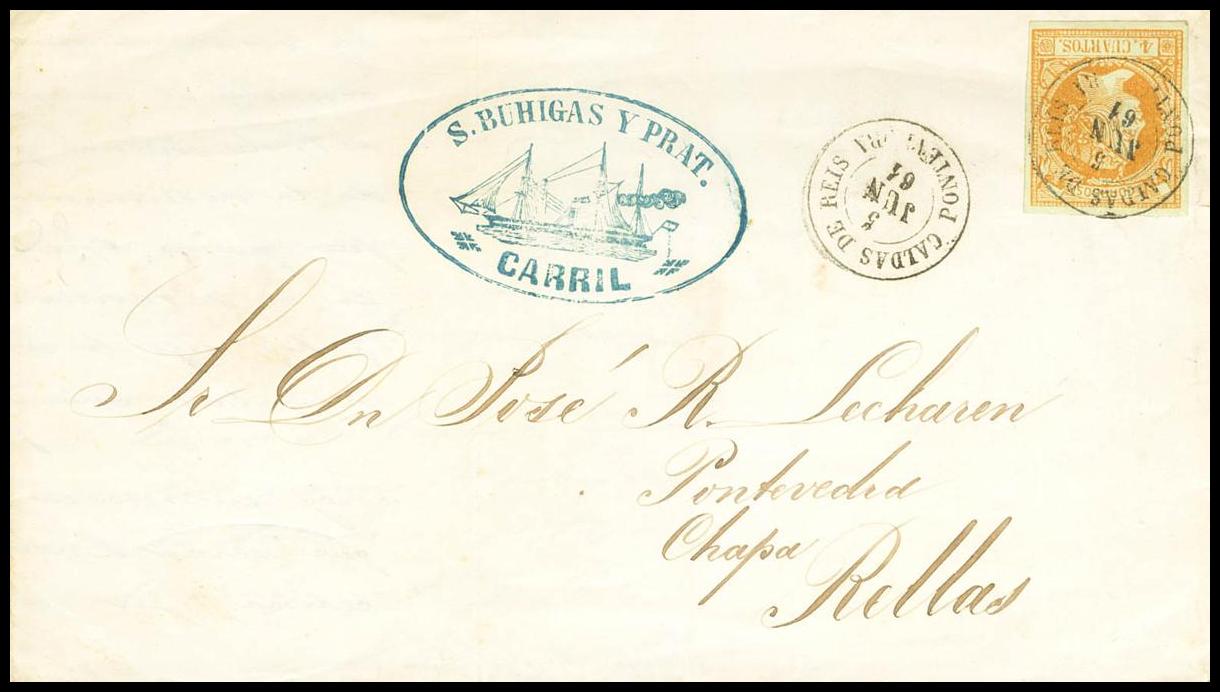 S. BUHIGAS Y PRAT.
CARRIL
CALDAS DE REIS
5
JUN
61
4. CUARTOS.
CALDAS DE REIS
5
JUN
61
Sr Dn José R. Lecharen
Pontevedra
Chapa
Rellas